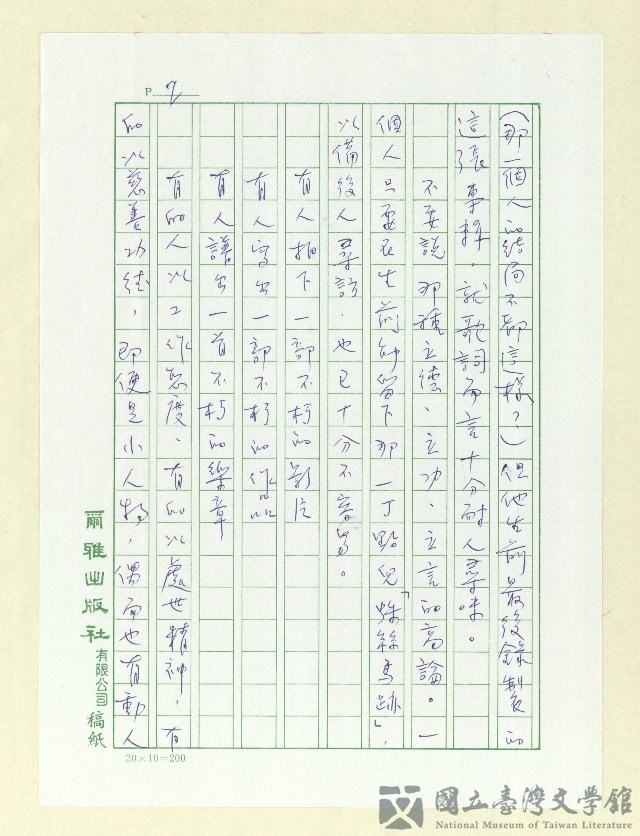 P. 7
(那一個人的結局不都這樣?)但他生前最後錄製的
這張專輯,就歌詞而言十分耐人尋味。
不要說那種立德、立功、立言的高論。一
個人只要在生前能留下那一丁點兒「蛛絲馬跡」,
以備後人尋訪,也已十分不容易。
有人拍下一部不朽的影片
有人寫出一部不朽的作品
有人譜出一首不朽的樂章
有的人以工作態度、有的以處世精神,有
的以慈善功德,即便是小人物,偶而也有動人
爾雅出版社有限公司稿紙
20×10=200
國立臺灣文學館
National Museum of Taiwan Literature